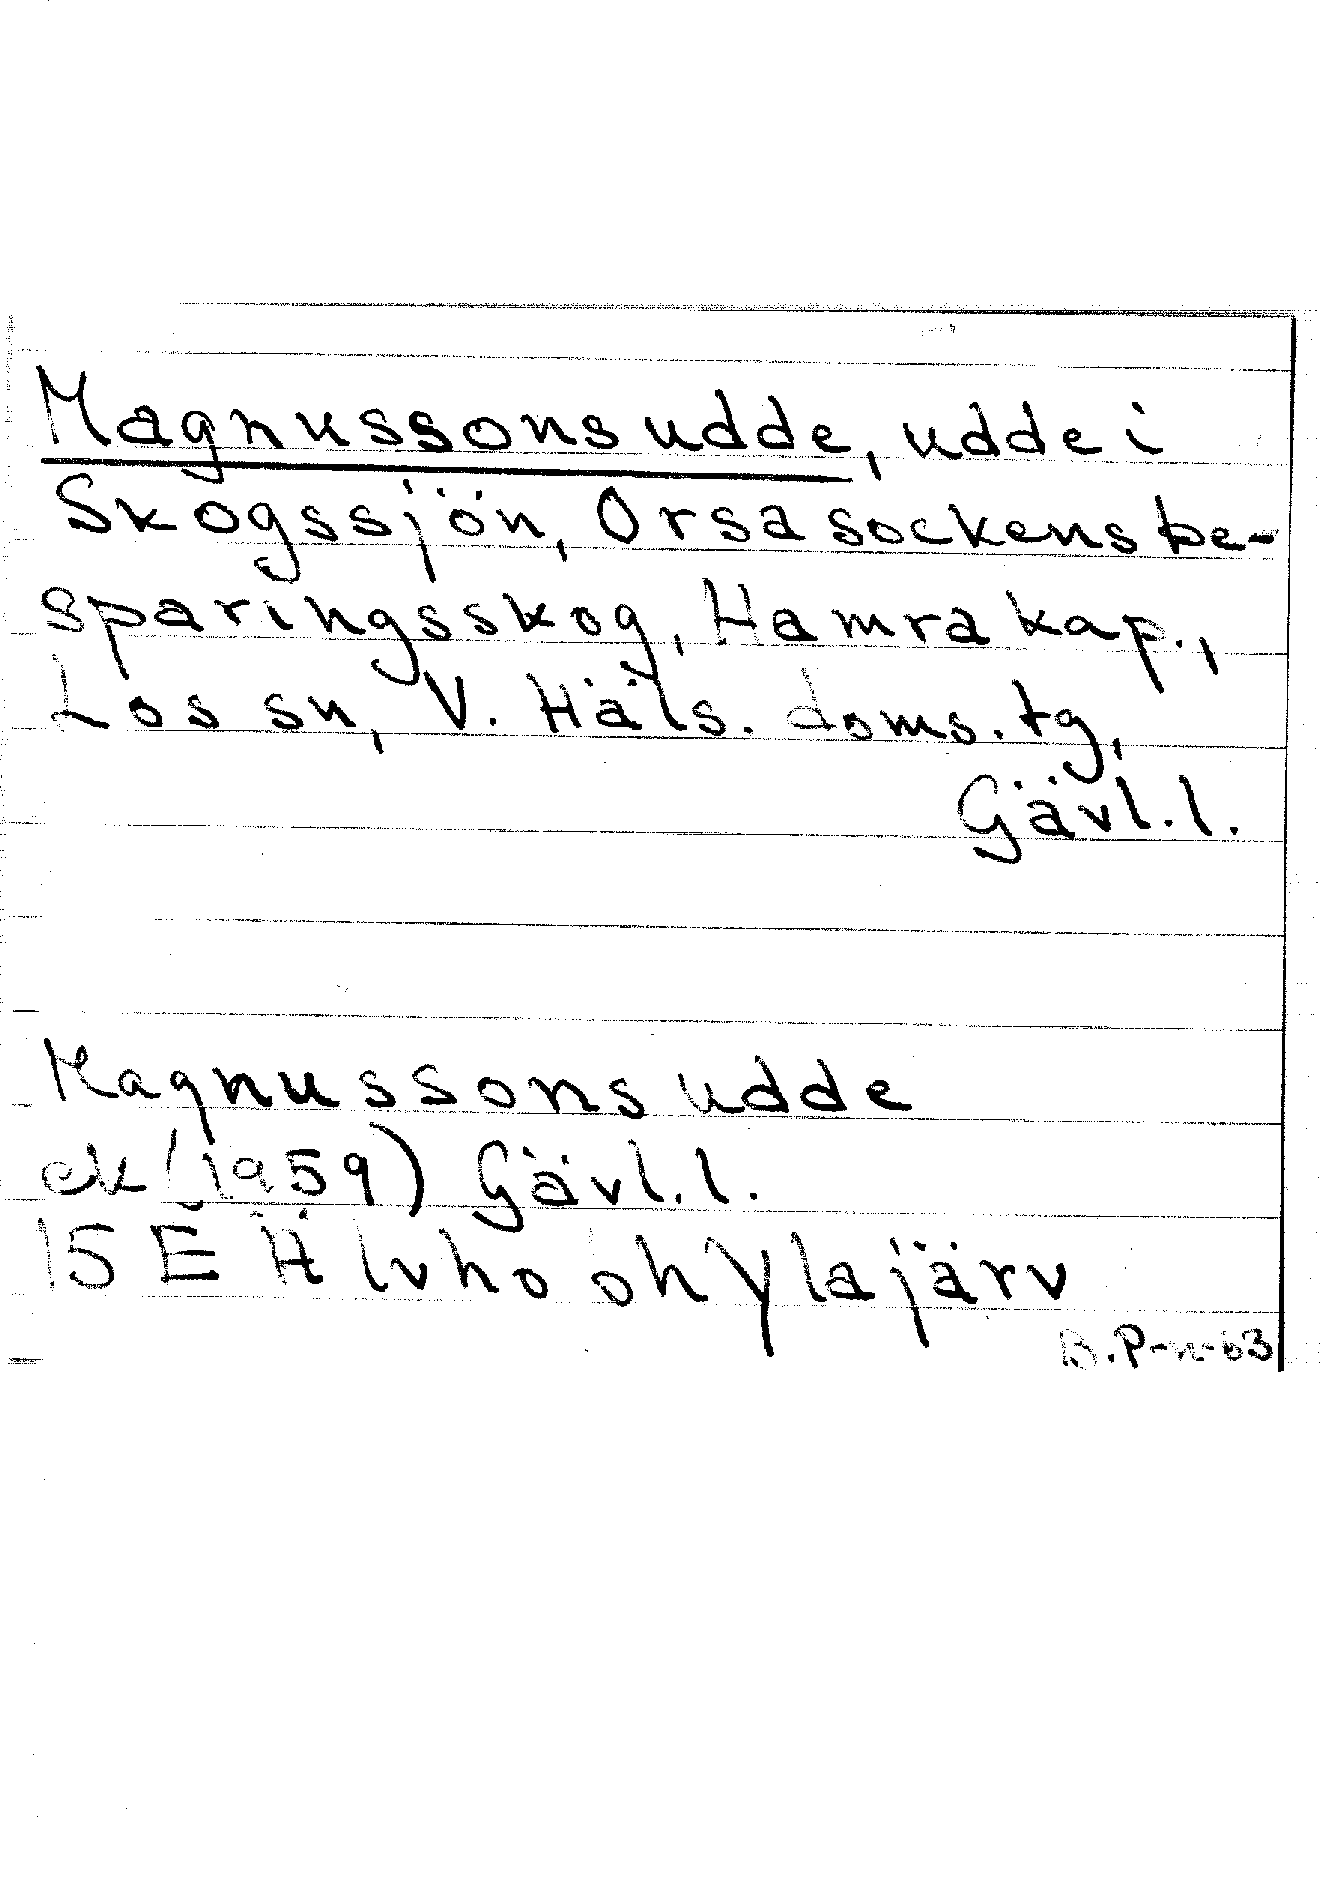 Magnussons udde, udde i
Skogssjön, Orsa sockens be-
sparingsskog, Hamra kap.,
Los sn, V. Häls. doms. tg,
Gävl. l.
Magnussons udde
ek (1959) Gävl. l.
15 E Älvho oh Ylajärv
B. P-n-63